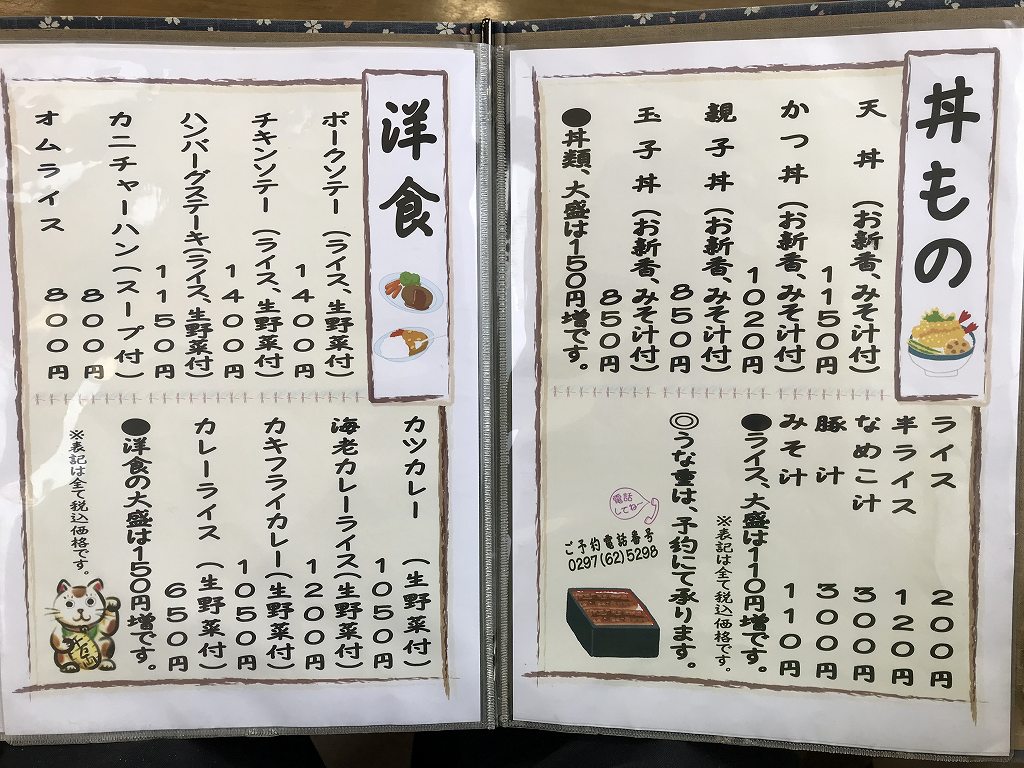 丼もの
天丼（お新香、みそ汁付）
1150円
かつ丼（お新香、みそ汁付）
1020円
親子丼（お新香、みそ汁付）
850円
玉子丼（お新香、みそ汁付）
850円
●丼類、大盛は150円増です。
ライス 200円
半ライス 120円
なめこ汁 300円
豚汁 300円
みそ汁 110円
●ライス、大盛は110円増です。
※表記は全て税込価格です。
◎うな重は、予約にて承ります。
電話
してねー
ご予約電話番号
0297(62)5298
洋食
ポークソテー（ライス、生野菜付）
1400円
チキンソテー（ライス、生野菜付）
1400円
ハンバーグステーキ(ライス、生野菜付)
1150円
カニチャーハン（スープ付）
800円
オムライス 800円
カツカレー（生野菜付）
1050円
海老カレーライス(生野菜付)
1200円
カキフライカレー(生野菜付)
1050円
カレーライス（生野菜付）
650円
●洋食の大盛は150円増です。
※表記は全て税込価格です。